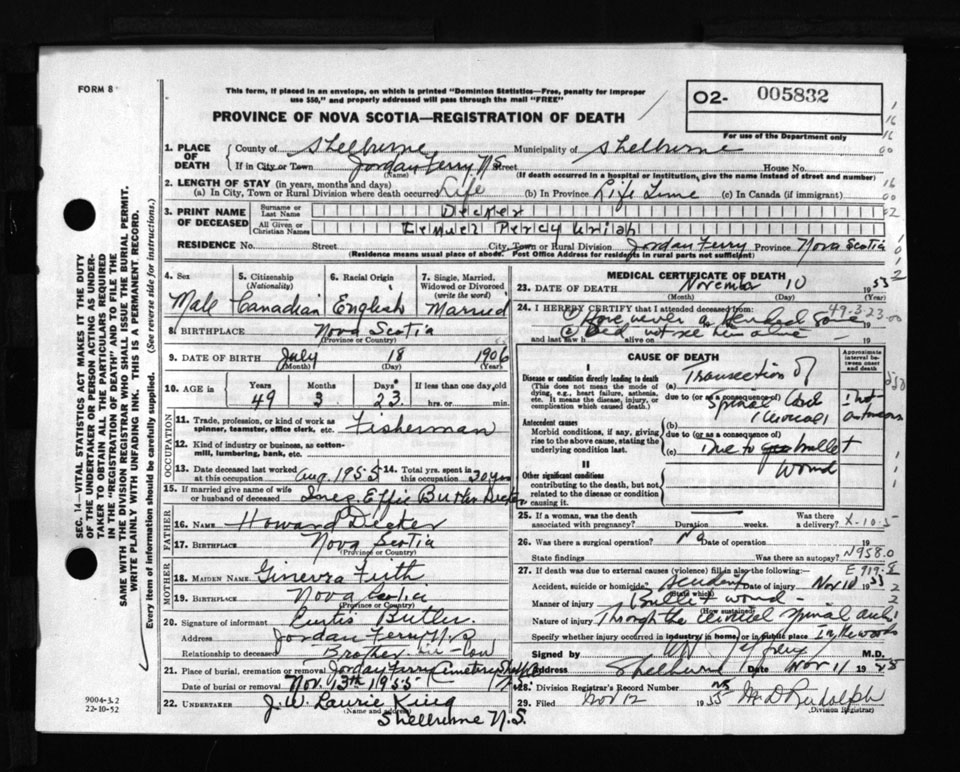 FORM 8
This form, if placed in an envelope, on which is printed "Dominion Statistics—Free, penalty for improper
use $50," and properly addressed will pass through the mail "FREE"
O2- 005832
For use of the Department only
PROVINCE OF NOVA SCOTIA—REGISTRATION OF DEATH
1. PLACE OF DEATH
County of Shelburne Municipality of Shelburne
If in City or Town Jordan Ferry N.S. Street House No.
(Name) (If death occurred in a hospital or institution, give the name instead of street and number)
2. LENGTH OF STAY (in years, months and days)
(a) In City, Town or Rural Division where death occurred Life (b) In Province Life Time (c) In Canada (if immigrant)
3. PRINT NAME OF DECEASED
Surname or Last Name Decker
All Given or Christian Names Lemuel Percy Uriah
RESIDENCE No. Street City, Town or Rural Division Jordan Ferry Province Nova Scotia
(Residence means usual place of abode. Post Office Address for residents in rural parts not sufficient)
4. Sex
Male
5. Citizenship
(Nationality)
Canadian
6. Racial Origin
English
7. Single, Married, Widowed or Divorced
(write the word)
Married
8. BIRTHPLACE Nova Scotia
(Province or Country)
9. DATE OF BIRTH July 18 1906
(Month) (Day) (Year)
10. AGE in Years Months Days If less than one day old
49 3 23 hrs. or min.
OCCUPATION
11. Trade, profession, or kind of work as
spinner, teamster, office clerk, etc. Fisherman
12. Kind of industry or business, as cotton-
mill, lumbering, bank, etc.
13. Date deceased last worked
at this occupation Aug. 1955
14. Total yrs. spent in
this occupation 30 yrs
15. If married give name of wife
or husband of deceased Inez Effie Butler Decker
FATHER
16. NAME Howard Decker
17. BIRTHPLACE Nova Scotia
(Province or Country)
MOTHER
18. MAIDEN NAME Ginevra Firth
19. BIRTHPLACE Nova Scotia
(Province or Country)
20. Signature of informant Curtis Butler.
Address Jordan Ferry N.S
Relationship to deceased Brother-in-Law
21. Place of burial, cremation or removal Jordan Ferry Cemetery
Date of burial or removal Nov. 13th 1955
22. UNDERTAKER J.W. Laurie King
(Name and address)
Shelburne N.S.
MEDICAL CERTIFICATE OF DEATH
23. DATE OF DEATH November 10 1955
(Month) (Day) (Year)
24. I HEREBY CERTIFY that I attended deceased from: 49-3-23-00
and last saw h alive on 19
Did not see him alive
CAUSE OF DEATH
Approximate interval between onset and death
I
Disease or condition directly leading to death
(This does not mean the mode of
dying, e.g., heart failure, asthenia,
etc. It means the disease, injury, or
complication which caused death.)
(a) Transection of
due to (or as a consequence of) Spinal Cord
Antecedent causes
Morbid conditions, if any, giving
rise to the above cause, stating the
underlying condition last.
(b) (Cervical)
due to (or as a consequence of)
(c) Due to bullet
wound
II
Other significant conditions
contributing to the death, but not
related to the disease or condition
causing it.
25. If a woman, was the death
associated with pregnancy? Duration weeks. Was there a delivery? X-10-5
26. Was there a surgical operation? No Date of operation 19
State findings Was there an autopsy? N958.0
27. If death was due to external causes (violence) fill in also the following:— E919-8
Accident, suicide or homicide? Accident Date of injury Nov 10 1955
(State which)
Manner of injury Bullet wound
(How sustained)
Nature of injury Through the cervical spinal
Specify whether injury occurred in industry, in home, or in public place In the woods
Signed by M.D.
Address Shelburne Date Nov 11 1955
28. Division Registrar's Record Number
29. Filed Nov 12 1955 M. D Rudolph
(Division Registrar)
SEC. 14—VITAL STATISTICS ACT MAKES IT THE DUTY
OF THE UNDERTAKER OR PERSON ACTING AS UNDER-
TAKER TO OBTAIN ALL THE PARTICULARS REQUIRED
IN THE "REGISTRATION OF DEATH" AND TO FILE THE
SAME WITH THE DIVISION REGISTRAR WHO SHALL ISSUE THE BURIAL PERMIT.
WRITE PLAINLY WITH UNFADING INK. THIS IS A PERMANENT RECORD.
Every item of information should be carefully supplied. (See reverse side for instructions.)
9004-3.2
22-10-52